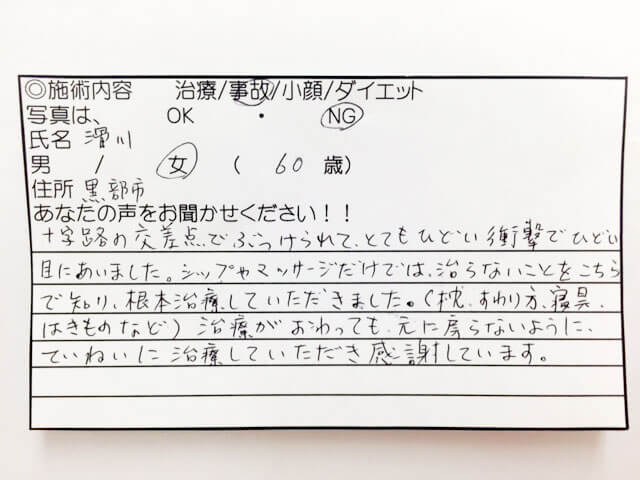 ◎施術内容 治療/事故/小顔/ダイエット
写真は、 OK ・ NG
氏名 滑川
男 / 女 ( 60 歳)
住所 黒部市
あなたの声をお聞かせください！！
十字路の交差点でぶつけられて、とてもひどい衝撃でひどい
目にあいました。シップやマッサージだけでは、治らないことをこちら
で知り、根本治療していただきました。(枕、すわり方、寝具、
はきものなど) 治療がおわっても、元に戻らないように、
ていねいに治療していただき感謝しています。